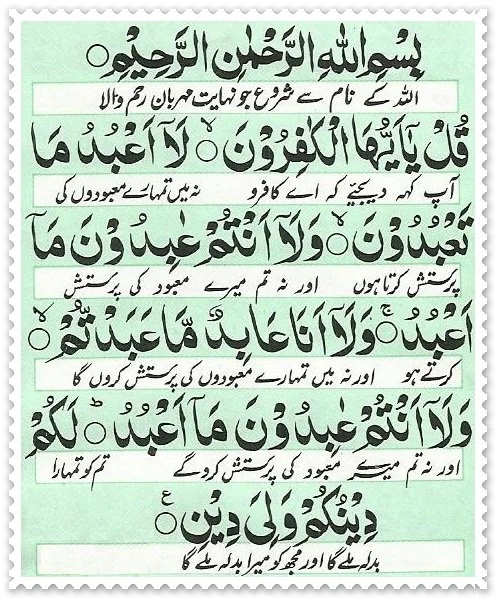 بِسْمِ اللهِ الرَّحْمٰنِ الرَّحِيْمِ ○
اللہ کے نام سے شروع جو نہایت مہربان رحم والا
قُلْ يٰٓاَيُّهَا الْكٰفِرُوْنَ ○ۙ لَآ اَعْبُدُ مَا
آپ کہہ دیجئیے کہ اے کافرو نہ میں تمہارے معبودوں کی
تَعْبُدُوْنَ ○ۙ وَلَآ اَنْتُمْ عٰبِدُوْنَ مَآ
پرستش کرتا ہوں اور نہ تم میرے معبود کی پرستش
اَعْبُدُ ○ۚ وَلَآ اَنَا عَابِدٌ مَّا عَبَدْتُّمْ ○ۙ
کرتے ہو اور نہ میں تمہارے معبودوں کی پرستش کروں گا
وَلَآ اَنْتُمْ عٰبِدُوْنَ مَآ اَعْبُدُ ○ؕ لَكُمْ
اور نہ تم میرے معبود کی پرستش کروگے تم کو تمہارا
دِيْنُكُمْ وَلِيَ دِيْنِ ○ع
بدلہ ملے گا اور مجھ کو میرا بدلہ ملے گا